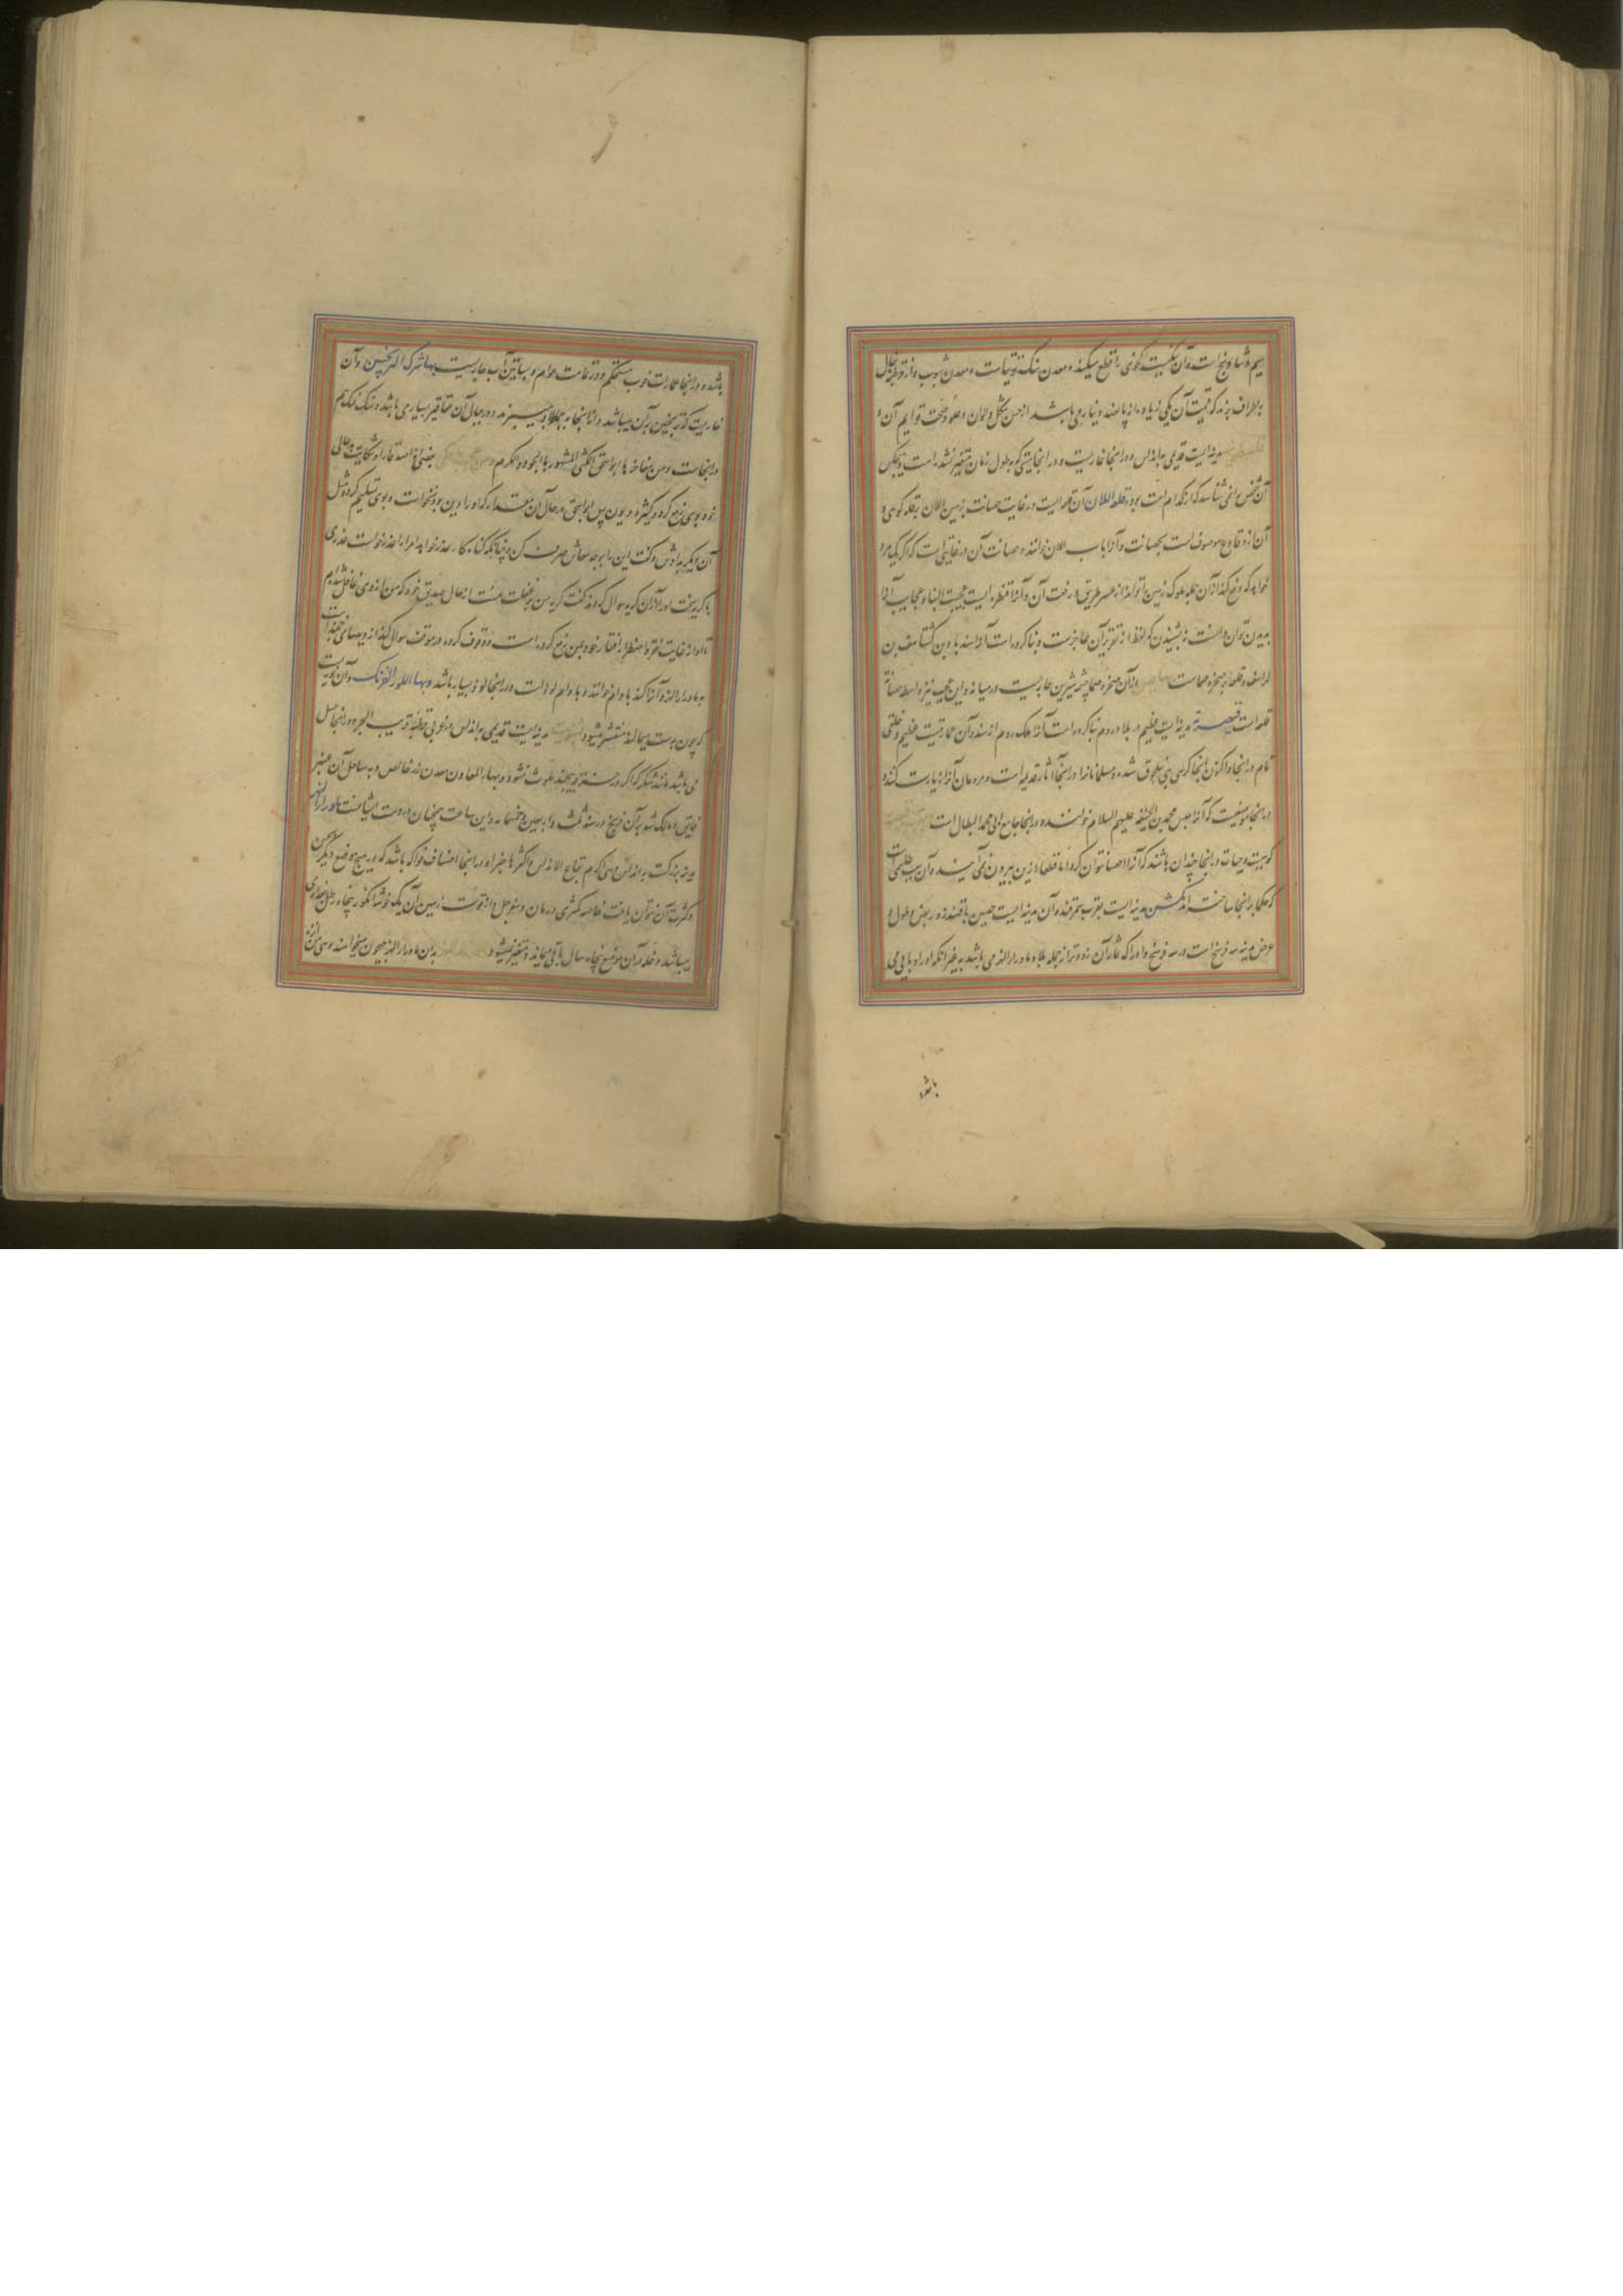 سیم و شادنج است و آن سنگیست که خون را قطع میکند و معدن سنگ توتیاست و معدن شبوب و از قرطبه بغال
به اطراف برند که قیمت آن یکی زیاده از پانصد دینار می باشد از حسن شکل و الوان و علو و صحت قوایم آن و
مدینه ایست قدیمی به اندلس و در اینجا غاریست و در اینجا میتی که بطول زمان متغیر نشده است و هیچکس
آن شخص را نمی شناسد که از کدام امت بوده قلعه اللان آن قلعه ایست در غایت حصانت بزمین الان بر قله کوهی و
آن از قلاع موصوف است بحصانت و آنرا باب الان خوانند و حصانت آن در غایتی است که اگر یکمرد
خواهد که منع کند از آن جمله ملوک زمین را تواند از عسر طریق و رفعت آن و آنرا قنطره ایست عجیبة البنا و عجایب آنرا
بدیدن توان دانست نه بشنیدن که لفظ از تقریر آن عاجزست و بنا کرده است آنرا سندباد بن کشتاسف بن
لهراسف و قلعه بر صخره صماست از آن صخره صما چشمه شیرین جاریست در میانه و این عجیب نیز واسطه حصانة
قلعه است قیصریه مدینه ایست عظیم در بلاد روم بنا کرده است آنرا ملک روم از سنگ و آن عمارتیست عظیم و خلقی
تمام در اینجا و اکنون اینجا کرسی بنی سلجوق شده و مسلمانانرا در اینجا آثار قدیمه است و مردمان آنرا زیارت کنند
در اینجا موضعیست که آنرا حبس محمد بن الحنفیه علیهم السلام خوانند و در اینجا جامع ابی محمد البطال است
کوهیست و حیات در اینجا چندان باشند که آنرا احصا نتوان کرد اما قطعا از این بیرون نمی آیند و آن بسبب طلسمی است
که حکما در اینجا ساخته اند کش مدینه ایست بقرب سمرقند و آن مدینه ایست حصین با قهندز و ربض و طول و
عرض مدینه سه فرسخ است در سه فرسخ و ادراک ثمار آن زودتر از جمله بلاد ماوراء النهر می باشد به غیر آنکه او را وبایی می
باشد
باشد و در اینجا عمارات خوب مستحکم و در عامت دورهم و بساتین آب جاریست بها شرک الترنجبین و آن
غاریست که ترنجبین بر آن میباشد و از اینجا به جمله بلاد میبرند و در جبال آن عقاقیر بسیار می باشد و سنگ نمک هم
در اینجاست و من مفاخرها ابو اسحق الکشی المشهور بالجود و الکرم بعضی از اصدقا را شکایت حال
خود بوی رفع کرد و کثرت دیون پس ابو اسحق در حال آن مقدار که او را دین بود بخواست و بوی تسلیم کرد و مثل
آن دیگر بدادش و گفت این را بوجه معاش صرف کن و چنانکه گناه کار عذر خواهد او را عذر خواست عذری
با گریه سخت او را از آن گریه سوال کردند گفت گریه من بر غفلت منست از حال صدیق خود که من از وی غافل شدم
تا او از غایت فقر و اضطرار افتقار خود بمن رفع کرده است و وقوف کرده در موقف سوال
به ماوراء النهر و آنرا کند بادام خوانند و بادام لوز است و در اینجا لوز بسیار باشد و بها اللوز الفرک و آن لوزیست
که چون بدست بمالند منقشر میشود مدینه ایست قدیمی به اندلس در غربی قرطبه قریب البحر و در اینجا عسل
می باشد مانند شکر که اگر در خرقه پیچند ملوث نشود و بها المعادن معدن زر خالص و به ساحل آن عنبر
فایق و مالک شد بر آن فرنج در سنه ثلث و اربعین و خمسمایه و این ساعت همچنان در دست ایشانست
مدینه بزرگست به اندلس و هی اکرم بقاع الاندلس و اکثرها خیرا و در اینجا اصناف فواکه باشد که در هیچ موضع دیگر
و کثرت آن نتوان یافت خاصه کمثری و رمان و سفرجل و از قوت زمین آن یک خوشه انگور پنجاه رطل بغدادی
میباشد و غله در آن موضع پنجاه سال باقی میماند و متغیر نمیشود بدان ماوراء النهر جیحون میخواهند